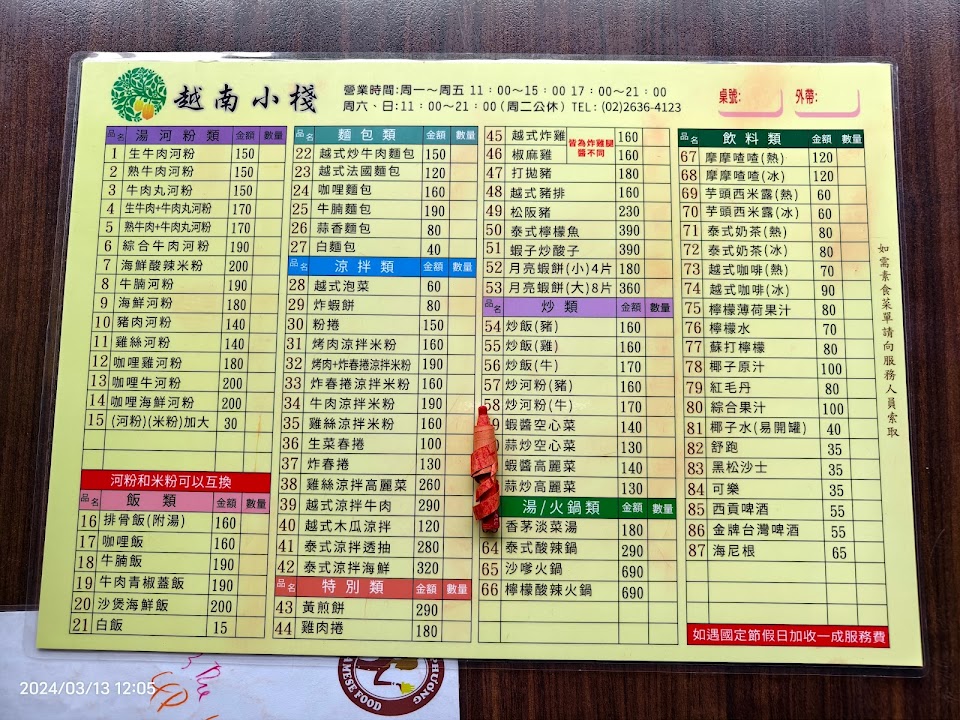 越南小棧
營業時間:周一～周五 11：00～15：00 17：00～21：00
周六、日:11：00～21：00 (周二公休) TEL: (02)2636-4123
桌號: 外帶:
品名 湯河粉類 金額 數量
1 生牛肉河粉 150
2 熟牛肉河粉 150
3 牛肉丸河粉 150
4 生牛肉+牛肉丸河粉 170
5 熟牛肉+牛肉丸河粉 170
6 綜合牛肉河粉 190
7 海鮮酸辣米粉 200
8 牛腩河粉 190
9 海鮮河粉 180
10 豬肉河粉 140
11 雞絲河粉 140
12 咖哩雞河粉 180
13 咖哩牛河粉 200
14 咖哩海鮮河粉 200
15 (河粉)(米粉)加大 30
河粉和米粉可以互換
品名 飯類 金額 數量
16 排骨飯(附湯) 160
17 咖哩飯 160
18 牛腩飯 190
19 牛肉青椒蓋飯 190
20 沙煲海鮮飯 200
21 白飯 15
品名 麵包類 金額 數量
22 越式炒牛肉麵包 150
23 越式法國麵包 120
24 咖哩麵包 160
25 牛腩麵包 190
26 蒜香麵包 80
27 白麵包 40
品名 涼拌類 金額 數量
28 越式泡菜 60
29 炸蝦餅 80
30 粉捲 150
31 烤肉涼拌米粉 160
32 烤肉+炸春捲涼拌米粉 190
33 炸春捲涼拌米粉 160
34 牛肉涼拌米粉 190
35 雞絲涼拌米粉 160
36 生菜春捲 100
37 炸春捲 130
38 雞絲涼拌高麗菜 260
39 越式涼拌牛肉 290
40 越式木瓜涼拌 120
41 泰式涼拌透抽 280
42 泰式涼拌海鮮 320
品名 特別類 金額 數量
43 黃煎餅 290
44 雞肉捲 180
45 越式炸雞 160
46 椒麻雞 160
皆為炸雞腿
醬不同
47 打拋豬 180
48 越式豬排 160
49 松阪豬 230
50 泰式檸檬魚 390
51 蝦子炒酸子 390
52 月亮蝦餅(小)4片 180
53 月亮蝦餅(大)8片 360
品名 炒類 金額 數量
54 炒飯(豬) 160
55 炒飯(雞) 160
56 炒飯(牛) 170
57 炒河粉(豬) 160
58 炒河粉(牛) 170
蝦醬空心菜 140
蒜炒空心菜 130
蝦醬高麗菜 140
蒜炒高麗菜 130
湯/火鍋類 金額 數量
香茅淡菜湯 180
64 泰式酸辣鍋 290
65 沙嗲火鍋 690
66 檸檬酸辣火鍋 690
品名 飲料類 金額 數量
67 摩摩喳喳(熱) 120
68 摩摩喳喳(冰) 120
69 芋頭西米露(熱) 60
70 芋頭西米露(冰) 60
71 泰式奶茶(熱) 80
72 泰式奶茶(冰) 80
73 越式咖啡(熱) 70
74 越式咖啡(冰) 90
75 檸檬薄荷果汁 80
76 檸檬水 70
77 蘇打檸檬 80
78 椰子原汁 100
79 紅毛丹 80
80 綜合果汁 100
81 椰子水(易開罐) 40
82 舒跑 35
83 黑松沙士 35
84 可樂 35
85 西貢啤酒 55
86 金牌台灣啤酒 55
87 海尼根 65
如遇國定節假日加收一成服務費
如需素食菜單請向服務人員索取
2024/03/13 12:05